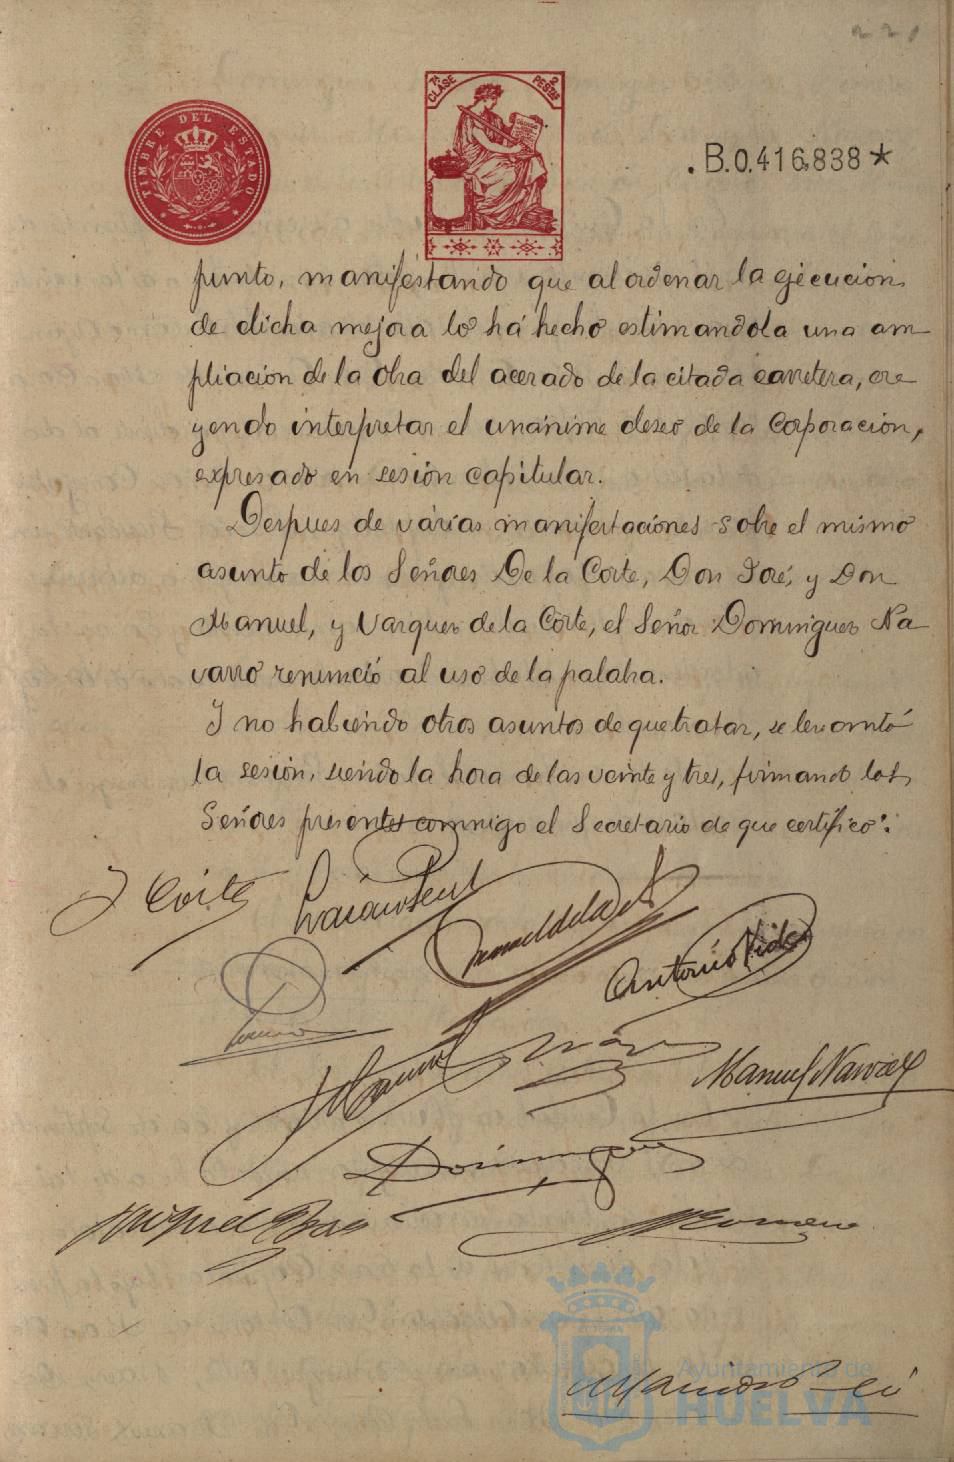 221
TIMBRE DEL ESTADO
7ª CLASE
2 PESTAS
.B.0.416,838*
punto, manifestando que al ordenar la ejecución
de dicha mejora lo há hecho estimandola una am
pliación de la obra del acerado de la citada carretera, cre
yendo interpretar el unánime deseo de la Corporación,
expresado en sesión capitular.
Despues de várias manifestaciónes sobre el mismo
asunto de los Señores De la Corte, Don José, y Don
Manuel, y Vazquez de la Corte, el Señor Dominguez Na
varro renunció al uso de la palabra.
Y no habiendo otros asuntos de que tratar, se levantó
la sesión, siendo la hora de las veinte y tres, firmando los
Señores presentes conmigo el Secretario de que certifico:.
J Corte
Manuel de la
Antonio Vides
Manuel
Manuel Narvaez
Dominguez
Miguel
Romero
Ayuntamiento de
HUELVA